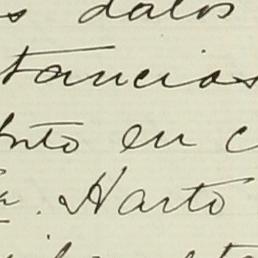 s datos
tancias
nto en c
a. Harto